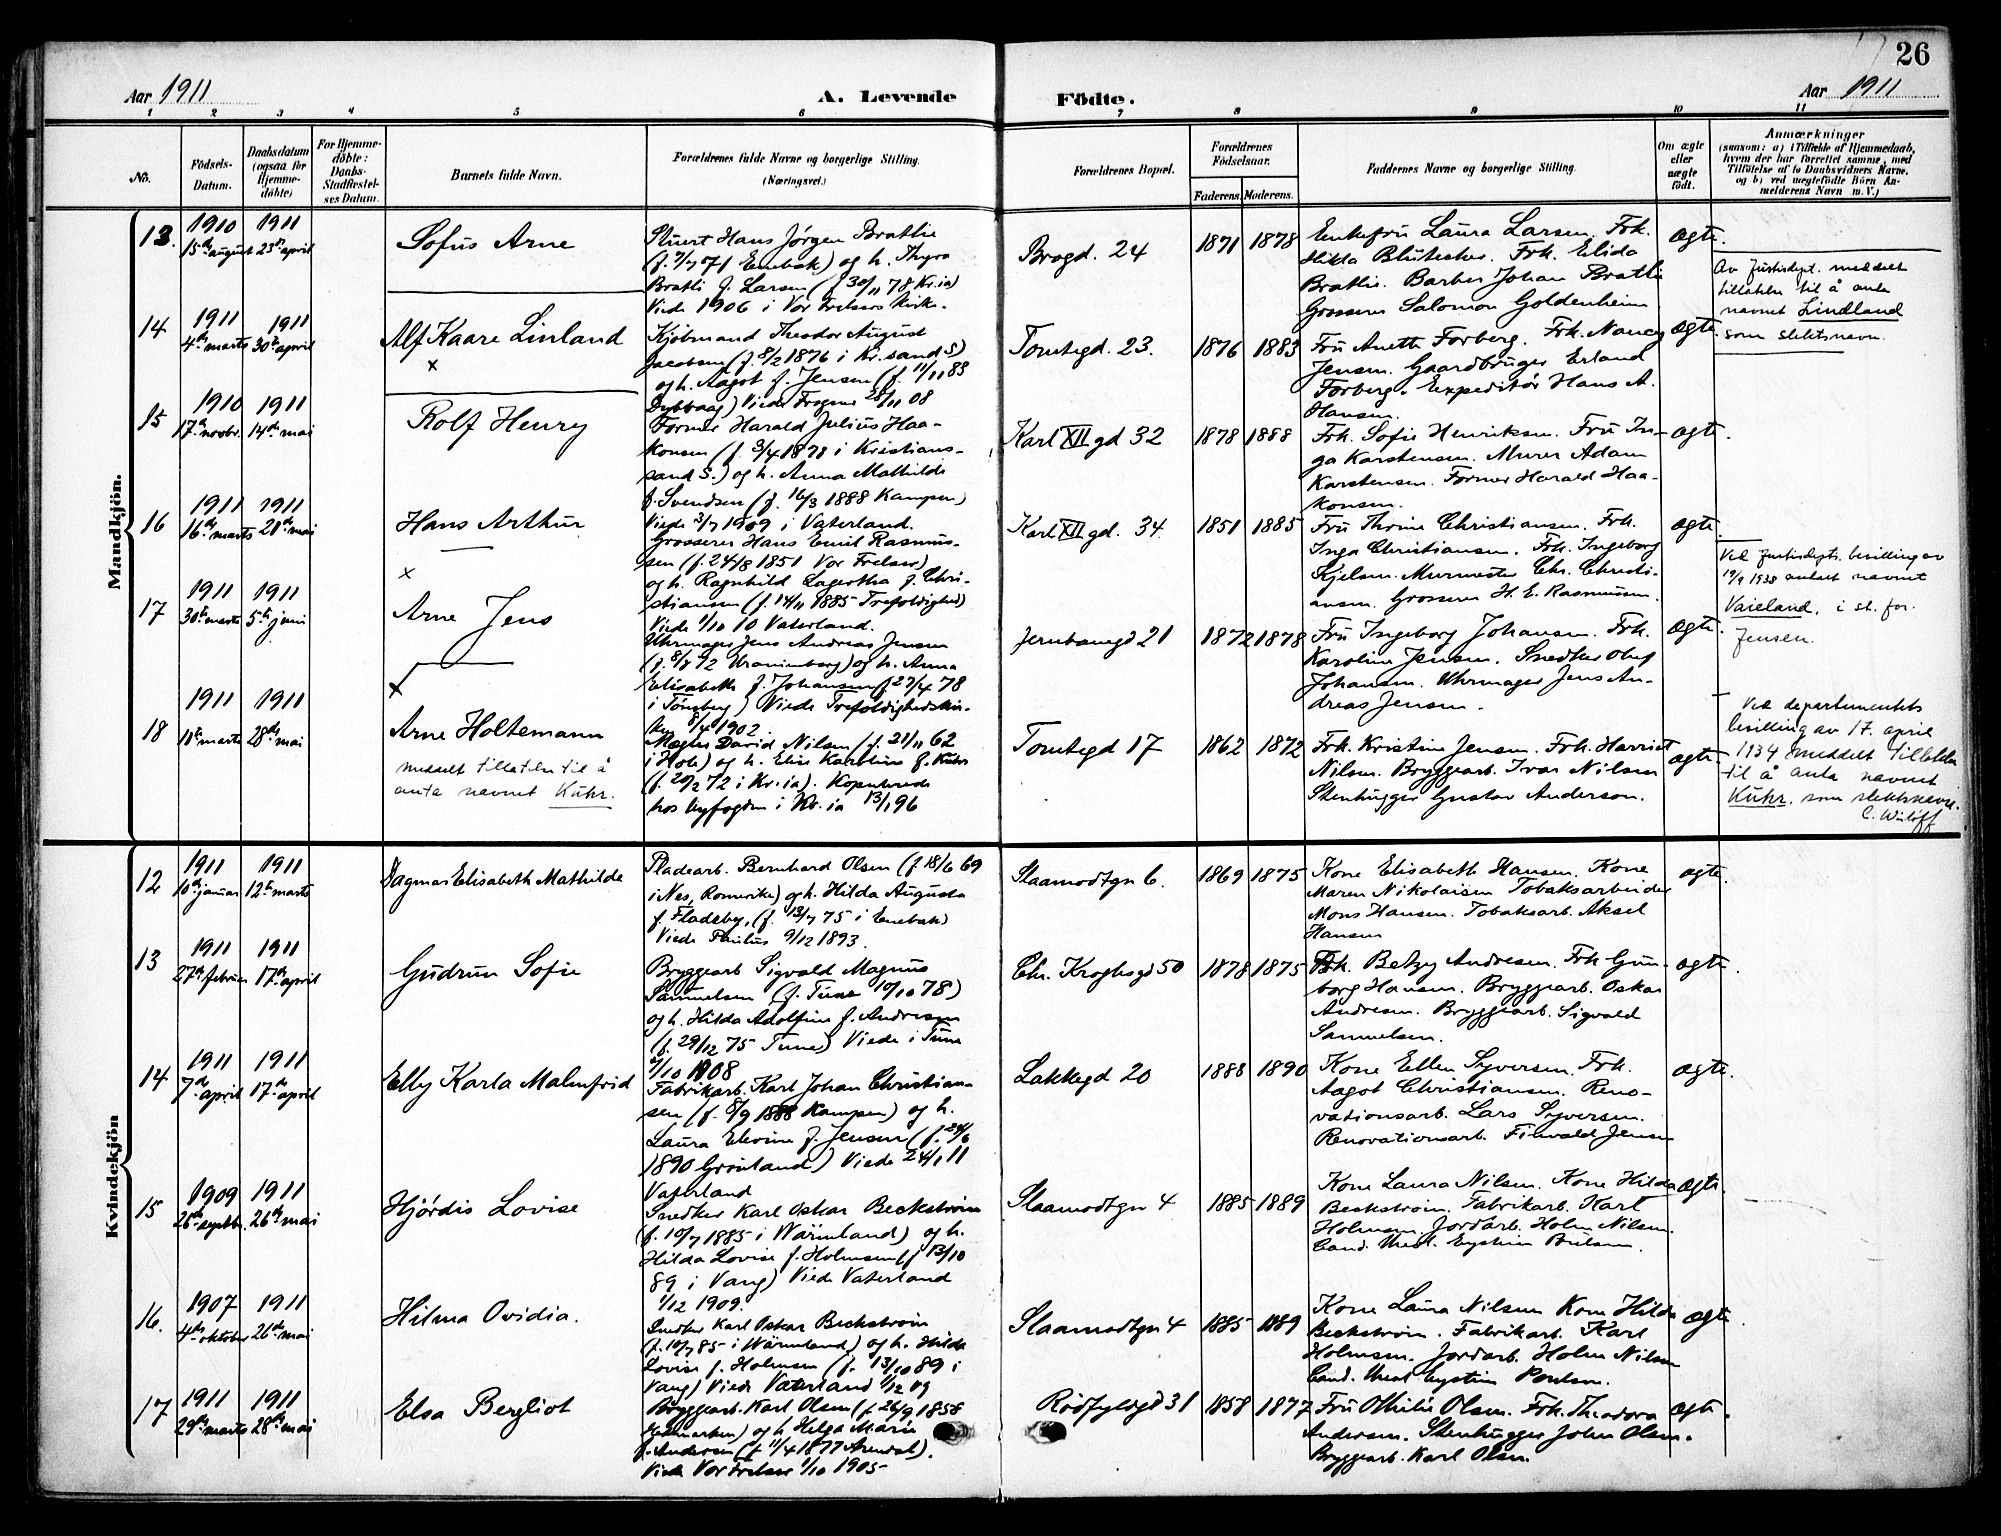 26
Aar 1911 A. Levende Födte. Aar 1911
1 2 3 4 5 6 7 8 9 10 11
No. Födsels-Datum. Daabsdatum (ogsaa for Hjemmedöbte) For Hjemmedöbte: Daabs-Stadfæstelses Datum. Barnets fulde Navn. Forældrenes fulde Navne og borgerlige Stilling. (Næringsvei.) Forældrenes Bopæl. Forældrenes Födselsaar. Faderens. Moderens. Faddernes Navne og borgerlige Stilling. Om ægte eller uægte födt. Anmærkninger (saasom: a) i Tilfælde af Hjemmedaab, hvem der har forrettet samme, med Tilföielse af to Daabsvidners Navne, og b) ved uægtefödte Börn Anmelderens Navn m. V.)
Mandkjön.
13. 1910 15de august 1911 23de april
Sofus Arne
Stuert Hans Jørgen Bratlie
(f. 7/7 71 Enebak) og h. Thyra
Bratli f. Larsen (f 30/11 78 Kr.ia)
Viede 1906 i Vor Frelsers kirke.
Brogd. 24 1871 1878
Enkefru Laura Larsen. Frk.
Hilda Blütecher. Frk. Elida
Bratlie. Barber Johan Bratli
Grosserer Salomon Goldenheim
ægte.
14 1911 4de marts 1911 30te april
Alf Kaare Linland
x
Kjøbmand Theodor August
Jacobsen (f. 8/2 1876 i Kr.sand S)
og h. Aagot f. Jensen (f. 11/11 83
Dybvaag) Viede Frogner 28/11 08
Tomtegd. 23. 1876 1883
Fru Anette Forberg. Frk. Nancy
Jensen. Gaardbruger Erland
Forberg. Expeditør Hans A.
Hansen.
ægte
Av Justisdept. meddelt
tillatelse til å anta
navnet Lindland
som slektsnavn.
15 1910 17de novbr. 1911 14de mai
Rolf Henry
Former Harald Julius Haa-
konsen (f. 3/4 1878 i Kristians-
sand S.) og h. Anna Mathilde
f. Svendsen (f. 16/3 1888 Kampen)
Viede 3/7 1909 i Vaterland.
Karl XII gd 32 1878 1888
Frk. Sofie Henriksen. Fru In-
ga Karstensen. Murer Adam
Karstensen. Former Harald Haa-
konsen.
ægte.
16 1911 16de marts 1911 21de mai
Hans Arthur
x
Grosserer Hans Emil Rasmus-
sen (f. 24/8 1851 Vor Frelser)
og h. Ragnhild Lagertha f. Chri-
stiansen (f. 14/11 1885 Trefoldighed)
Viede 1/10 10 Vaterland.
Karl XII gd. 34. 1851 1885
Fru Thrine Christiansen. Frk.
Inga Christiansen. Frk. Ingeborg
Kjelsen. Murmester Chr. Christi-
ansen. Grosserer H. E. Rasmussen.
ægte.
17 1911 30te marts 1911 5te juni
Arne Jens
x
Uhrmager Jens Andreas Jensen
(f. 8/8 72 Uranienborg) og h. Anna
Elisabeth f. Johansen f 27/4 78
i Tönsberg) Viede Trefoldighedskir-
ken 8/4 1902.
Jernbanegd 21 1872 1878
Fru Ingeborg Johansen. Frk.
Karoline Jensen. Snedker Oluf
Johansen. Uhrmager Jens An-
dreas Jensen.
ægte.
Ved Justisdepts. bevilling av
19/9 1938 antat navnet
Vaieland, i st. for
Jensen.
18 1911 18de marts 1911 28de mai
Arne Holtemann
meddelt tillatelse til å
anta navnet Kuhr.
Mægler David Nilsen (f. 21/11 62
i Hole) og h. Elise Karoline f. Kuhr
(f. 20/2 72 i Kr.ia). Kopulerede
hos byfogden i Kr.ia 13/1 96
Tomtegd 17 1862 1872
Frk. Kristine Jensen. Frk. Harriet
Nilsen. Bryggearb. Ivar Nilsen
Stenhugger Gustav Anderson.
ægte
Ved departementets
bevilling av 17. april
1934 meddelt tillatelse
til å anta navnet
Kuhr, som slektsnavn.
C. Wulff
Kvindekjön
12 1911 10de januar 1911 12te marts
Dagmar Elisabeth Mathilde
Pladearb. Bernhard Olsen (f 18/6 69
i Nes, Romerike) og h. Hilda Augusta
f. Fladeby, (f. 13/7 75 i Enebak)
Viede Paulus 9/12 1893.
Slaamodtgn 6. 1869 1875
Kone Elisabeth Hansen. Kone
Maren Nikolaisen Tobaksarbeider
Mons Hansen. Tobaksarb. Aksel
Hansen
ægte.
13 1911 27de februar 1911 17de april
Gudrun Sofie
Bryggearb Sigvald Magnus
Samuelsen (f. Tune 10/10 78)
og h. Hilda Adolfine f. Andresen
(f. 29/12 75 Tune) Viede i Tune
4/10 1908
Chr. Kroghsgd 50 1878 1875
Frk. Betzy Andresen. Frk Gun-
borg Hansen. Bryggearb. Oskar
Andresen. Bryggearb. Sigvald
Samuelsen.
ægte.
14 1911 7de april 1911 17de april
Elly Karla Malmfrid
Fabrikarb. Karl Johan Christian-
sen (f. 8/9 1888 Kampen) og h.
Laura Elevine f. Jensen (f. 24/6
1890 Grønland) Viede 24/1 11
Vaterland
Lakkegd 20 1888 1890
Kone Ellen Syversen. Frk.
Aagot Christiansen. Reno-
vationsarb. Lars Syversen.
Renovationsarb. Finvald Jensen
ægte.
15 1909 26de septbr. 1911 26de mai
Hjördis Lovise
Snedker Karl Oskar Beckström
(f. 10/7 1885 i Wärmland) og h.
Hilda Lovise f. Holmsen (f 13/10
89 i Vang) Viede Vaterland
1/12 1909.
Slaamodtgn 4 1885 1889
Kone Laura Nilsen. Kone Hilda
Beckström. Fabrikarb. Karl
Holmsen Jordarb. Holm Nilsen.
Cand. theol. Eystein Poulsen.
ægte.
16. 1907 4de oktober 1911 26de mai
Hilma Ovidia.
Snedker Karl Oskar Beckström
(f. 10/7 85 i Wärmland) og h. Hilda
Lovise f. Holmsen (f. 13/10 89 i
Vang) Viede Vaterland 1/12 09
Slaamodtgn 4 1885 1889
Kone Laura Nilsen Kone Hilda
Beckström. Fabrikarb. Karl
Holmsen. Jordarb. Holm Nilsen
Cand. theol Eystein Poulsen.
ægte
17 1911 29de marts 1911 28de mai
Elsa Bergliot
Bryggearb. Karl Olsen (f 26/9 1858
Hedmarken) og h Helga Marie
f. Andersen (f. 11/4 1877 Arendal).
Viede Vor Frelser 1/10 1905
Rødfyldgd 31 1858 1877
Fru Othilie Olsen. Frk. Theodora
Andersen. Stenhugger John Olsen.
Bryggearb. Karl Olsen
ægte.